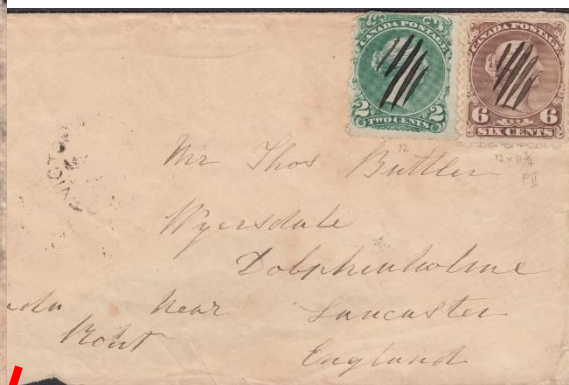 CANADA POSTAGE
2 TWO CENTS 2
CANADA POSTAGE
6 SIX CENTS 6
12
12 x 11½
PII
Mr Thos Butler
Wyersdale
Dolphinholme
near
Lancaster
England